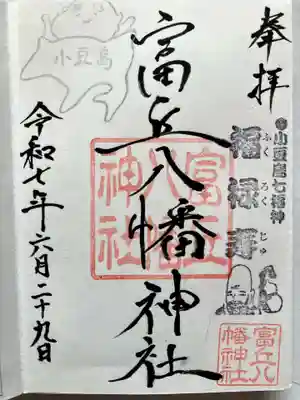 奉拝
小豆島七福神
福禄寿
ふくろくじゅ
富丘八幡神社
富丘八幡神社
富丘八幡神社
小豆島
令和七年六月二十九日